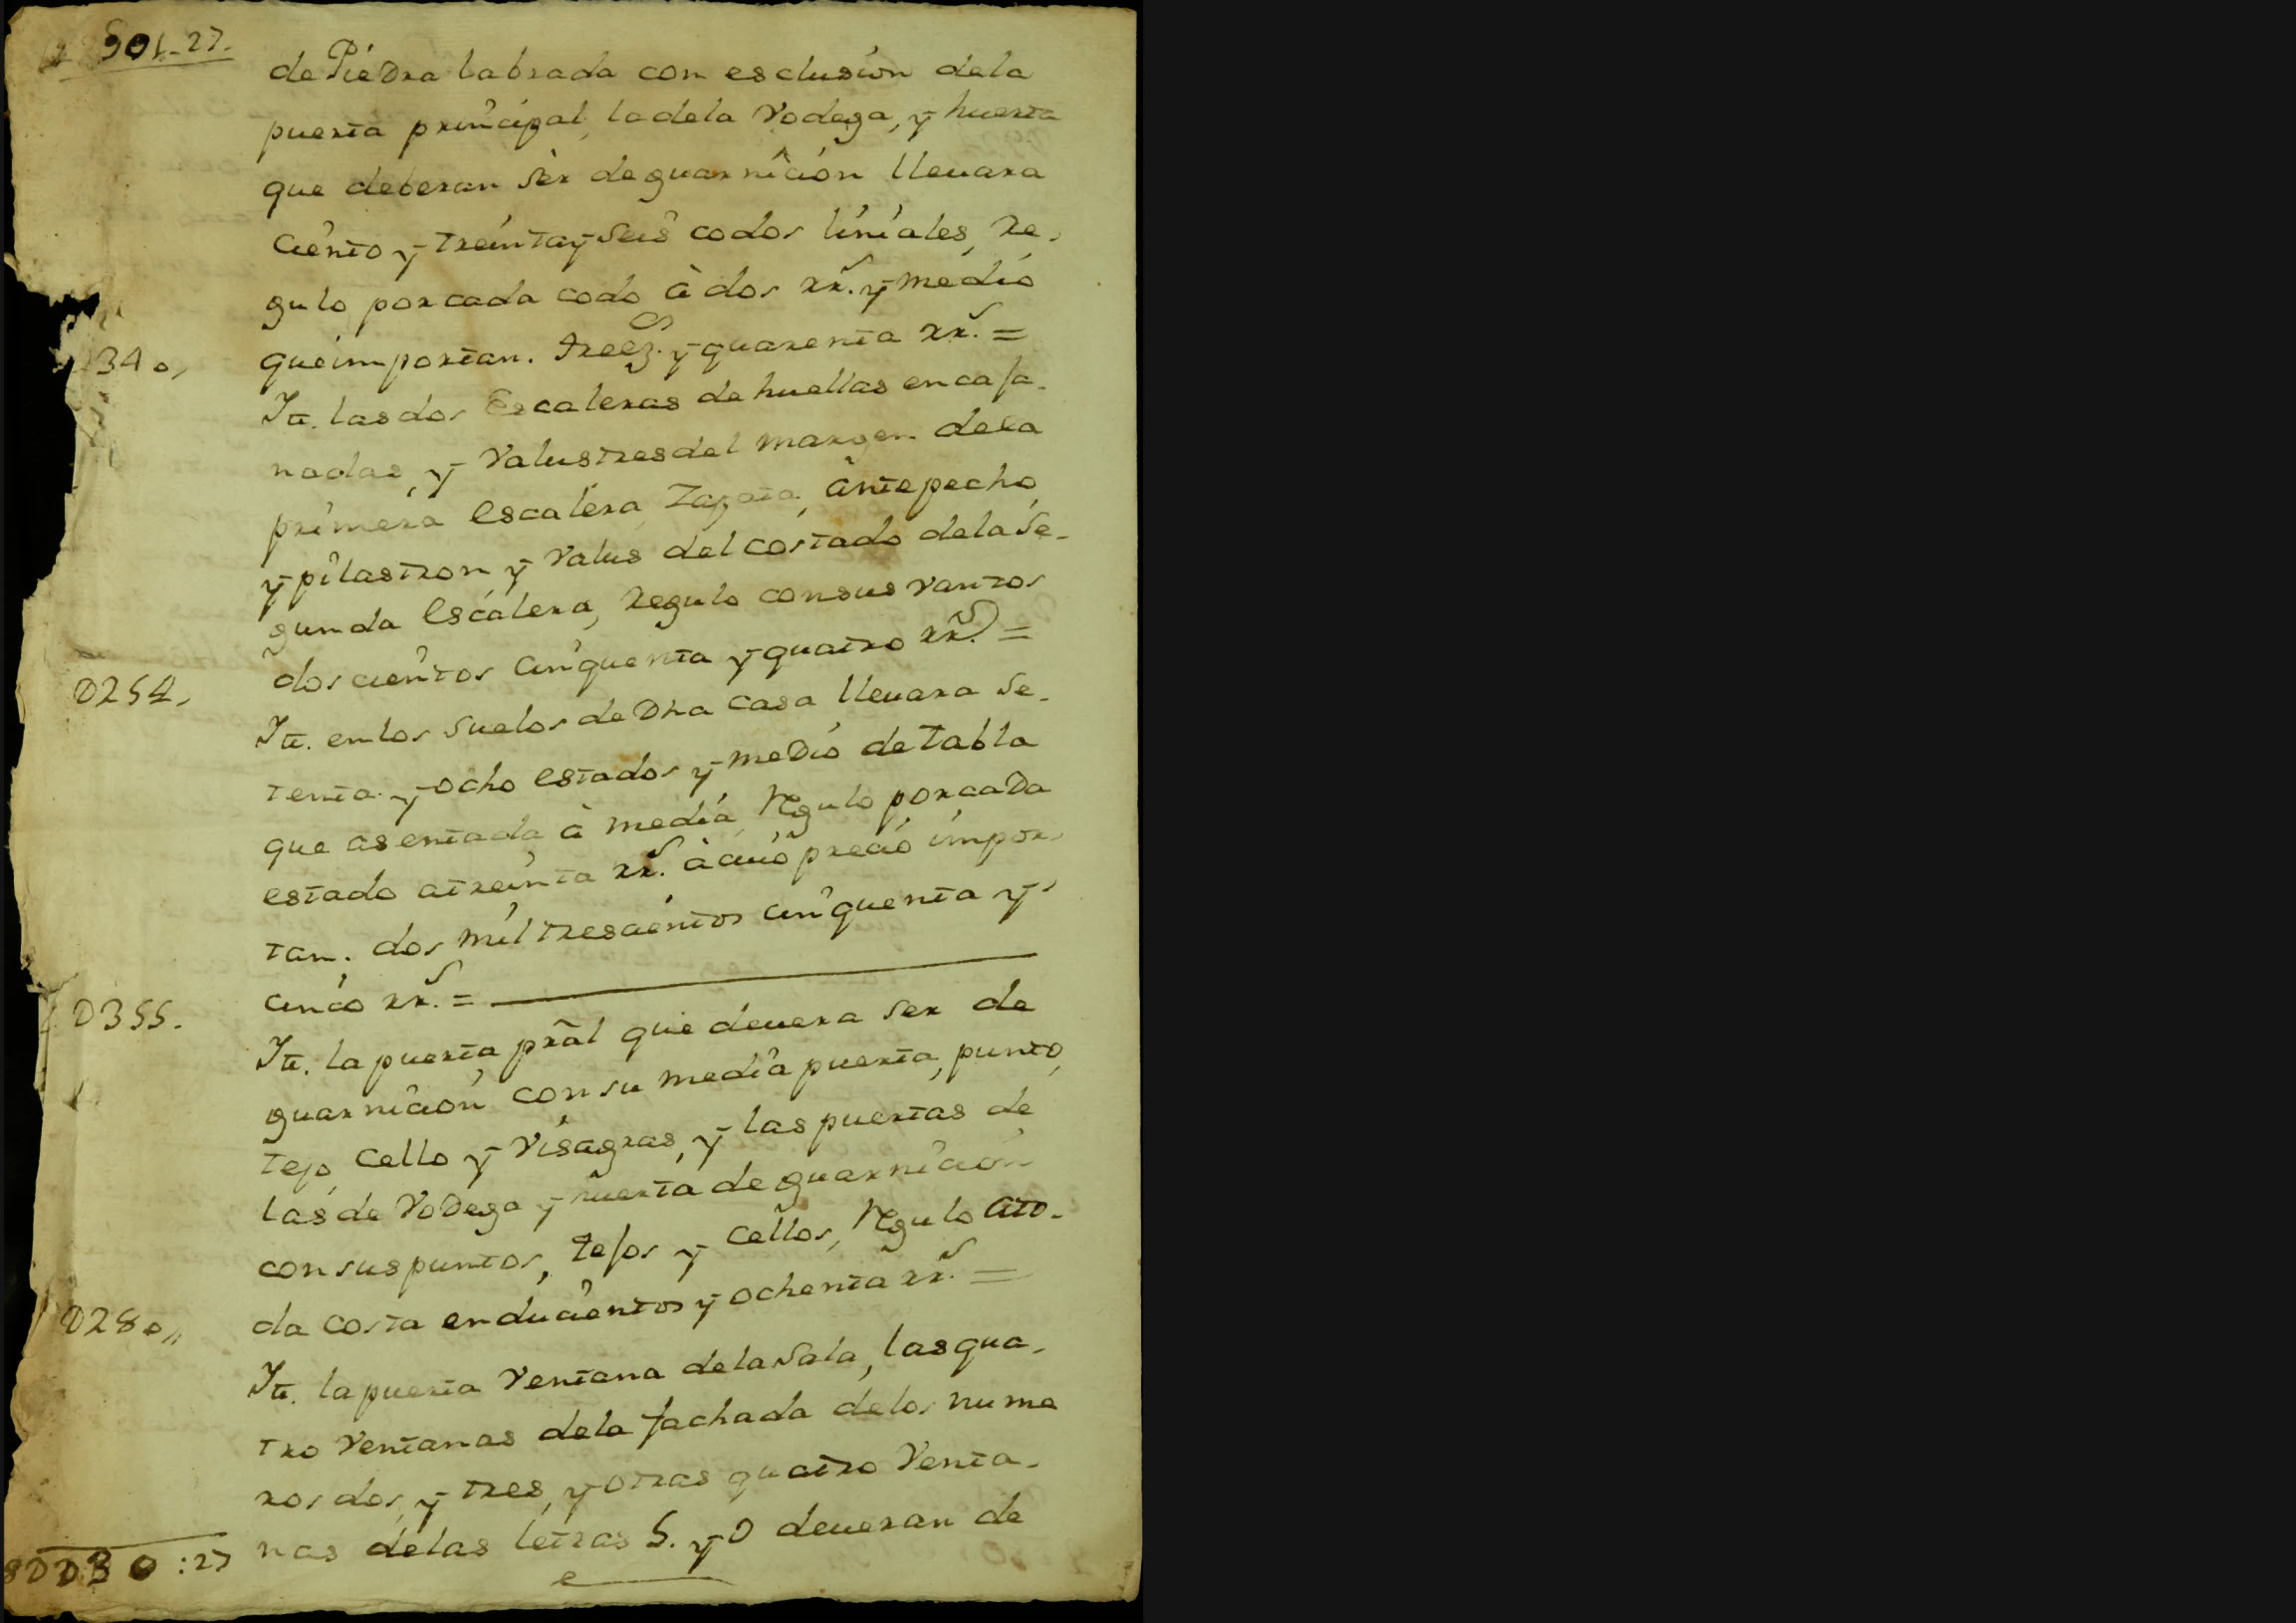 901-27.
de Piedra labrada con esclusion dela
puerta principal, la dela Vodega, y huerta
que deberan ser de guarnicion llevara
ciento y treinta y seis codos liniales, Re-
gulo por cada codo à dos rr.s y medio
que importan. trecz.s y quarenta rr.s =
340,
Itt. las dos Escaleras de huellas encaja-
nadas, y Valustres del margen dela
primera escalera Zapata, antepecho,
y pilastron y Valus del costado dela Se-
gunda escalera, Regulo con sus vantzos
doscientos cinquenta y quatro rr.s =
D254,
Itt. en los suelos de Dha casa llevara se-
tenta y ocho estados y medio de tabla
que asentada à media Regulo por cada
estado a treinta rr.s à cuio precio impor-
tan. dos mil trescientos cinquenta y
cinco rr.s =
D355.
Itt. la puerta prãl que devera ser de
guarnicion con su media puerta, punto,
tejo, Cello y Visagras, y las puertas de
las de Vodega y huerta de guarnicion
con sus puntos, tejos y Cellos, Regulo ato-
da costa en ducientos y ochenta rr.s =
D280,,
Itt. la puerta Ventana dela Sala, las qua-
tro Ventanas dela fachada de los nume
ros dos, y tres, y otras quatro Venta-
nas de las letras S. y O deveran de
8DD30:27